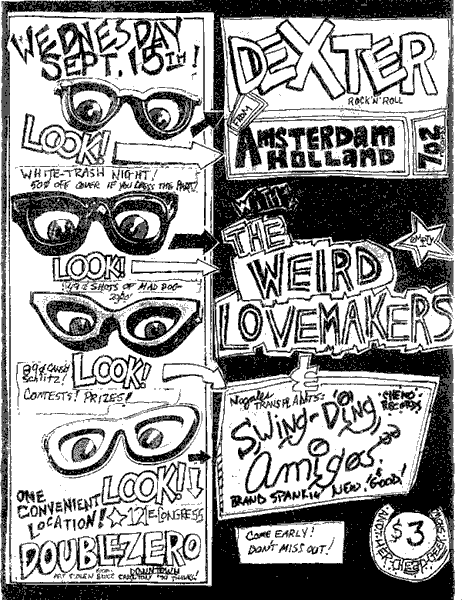 WEDNESDAY
SEPT. 15TH!
LOOK!
WHITE-TRASH NIGHT!
50¢ OFF COVER IF YOU DRESS THE PART!
LOOK!
49¢ SHOTS OF MAD DOG
20/20!
89¢ CANS
SCHLITZ!
LOOK!
CONTESTS! PRIZES!
LOOK!
ONE
CONVENIENT
LOCATION!
121 E. CONGRESS
DOUBLEZERO
DOWNTOWN
DEXTER
ROCK 'N' ROLL
FROM
AMSTERDAM
HOLLAND
702
WITH
THE
WEIRD
LOVEMAKERS
Nogales
TRANSPLANTS:
RECORDS
Swing-Ding
amigos
BRAND SPANKIN' NEW & GOOD!
COME EARLY!
DON'T MISS OUT!
$3
ANOTHER CHEEP